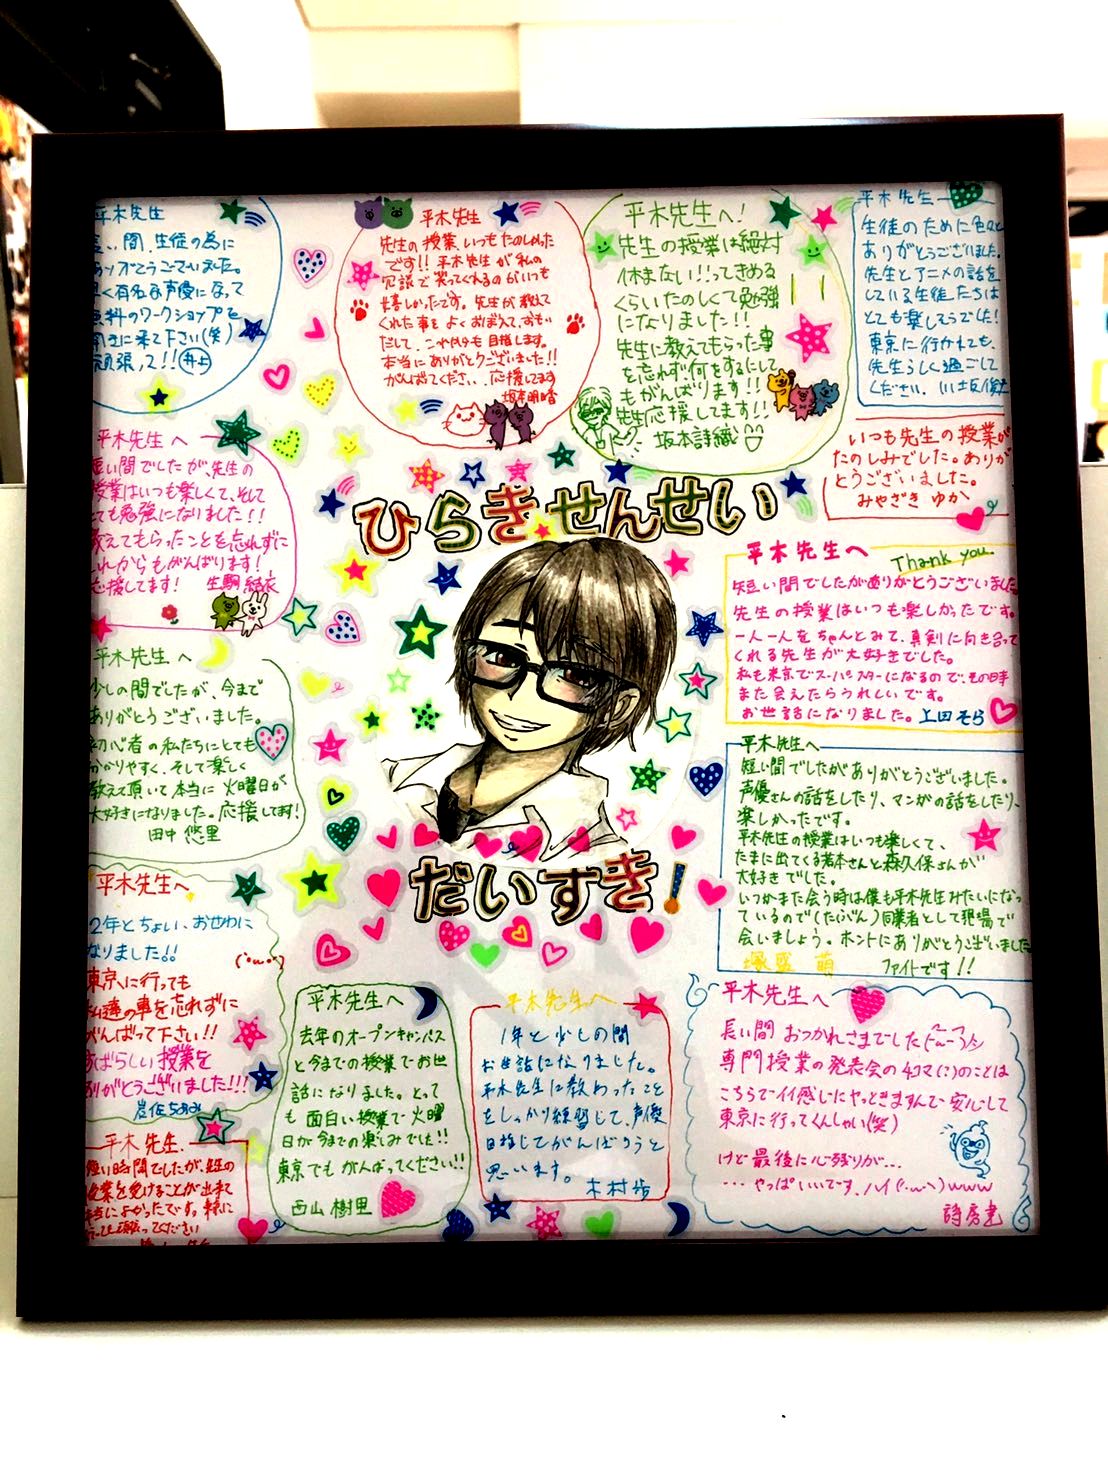 平木先生
間、生徒の為に
有名な声優になって
無料のワークショップを
来て下さい(笑)
頑張って!!
平木先生
先生の授業、いつもたのしめった
です!!平木先生が私の
冗談で笑ってくれるのがいつも
嬉しかったです。先生が教えて
くれた事をよくおぼえて、
目指します。
本当にありがとうございました!!
がんばってください、応援してます
坂本明香
平木先生へ!
先生の授業は絶対
休まない!!ってきめる
くらいたのしくて勉強
になりました!!
先生に教えてもらった事
を忘れず何をするにして
もがんばります!!
先生応援してます!!
坂本詩織
平木先生
生徒のために色々と
ありがとうございました。
先生とアニメの話を
している生徒たちは
とても楽しそうでした!
東京に行かれても、
先生らしく過ごして
ください。
いつも先生の授業が
たのしみでした。ありが
とうございました。
みやざき ゆか
平木先生へ
短い間でしたが先生の
授業はいつも楽しくて、そして
とても勉強になりました!!
教えてもらったことを忘れずに
これからもがんばります!
応援してます! 生駒 結衣
ひらきせんせい
だいすき!
平木先生へ
Thank you.
短い間でしたがありがとうございました
先生の授業はいつも楽しかったです。
一人一人をちゃんとみて、真剣に向き合って
くれる先生が大好きでした。
私も東京でスーパースターになるので、その時
また会えたらうれしいです。
お世話になりました。上田そら
平木先生へ
少しの間でしたが、今まで
ありがとうございました。
初心者の私たちにとても
わかりやすく、そして楽しく
教えて頂いて本当に火曜日が
大好きになりました。応援してます!
田中 悠里
平木先生へ
短い間でしたがありがとうございました。
声優さんの話をしたり、マンガの話をしたり、
楽しかったです。
平木先生の授業はいつも楽しくて、
たまに出てくる若本さんと森久保さんが
大好きでした。
いつかまた会う時は僕も平木先生みたいになっ
ているので(たぶん)同業者として現場で
会いましょう。ホントにありがとうございました
萌 ファイトです!!
平木先生へ
2年とちょい、おせわに
なりました!!
東京に行っても
私達の事を忘れずに
がんばって下さい!!
すばらしい授業を
ありがとうございました!!!
平木先生へ
去年のオープンキャンパス
と今までの授業でお世
話になりました。とって
も面白い授業で火曜
日が今までの楽しみでした!!
東京でもがんばってください!!
西山 樹里
平木先生へ
1年と少しの間
お世話になりました。
平木先生に教わったこと
をしっかり練習して、声優
目指してがんばろうと
思います。
木村 歩
平木先生へ
長い間 おつかれさまでした
専門授業の発表会の4コマ(?)のことは
こちらでイイ感じにやっときますんで安心して
東京に行ってくんしゃい(笑)
けど最後に心残りが…
…やっぱいいです、ハイ www
平木先生
短い時間でしたが、先生の
授業を受けることが出来て
本当によかったです。